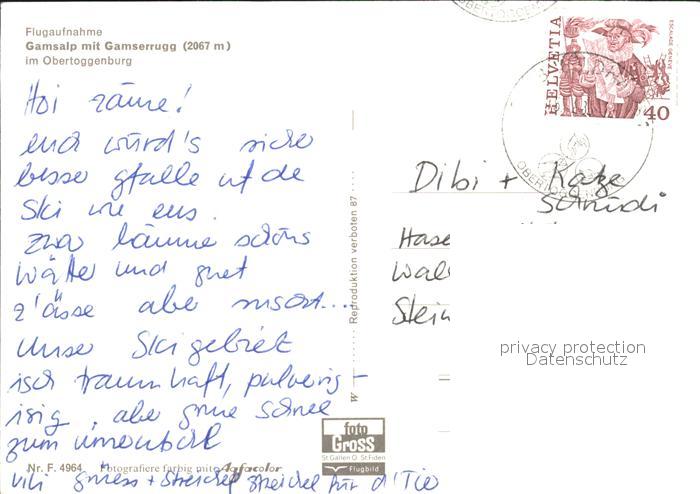 Flugaufnahme
Gamsalp mit Gamserrugg (2067 m)
im Obertoggenburg
Hoi zäme!
eud würd's sicher
besser gfalle uf de
Ski wie eus.
Zwar hämme schöns
Wätter und guet
z'ässe aber susch...
Unser Skigebiet
isch traumhaft, pulverig-
isig, aber gnue Schnee
zum
Vili Grüess + Streichel Streichel für d'Tier
Nr. F. 4964 Fotografiere farbig mit Agfacolor
Reproduktion verboten 87
foto
GROSS
St. Gallen O. St. Fiden
Flugbild
HELVETIA
ESCALADE GENÈVE
40
OBERTOGGENBURG
Dibi + Katze
Schmidi
Hase
Wal
Stein
privacy protection
Datenschutz